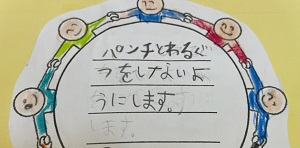 パンチとわるぐ
つをしないよ
うにします。
します。